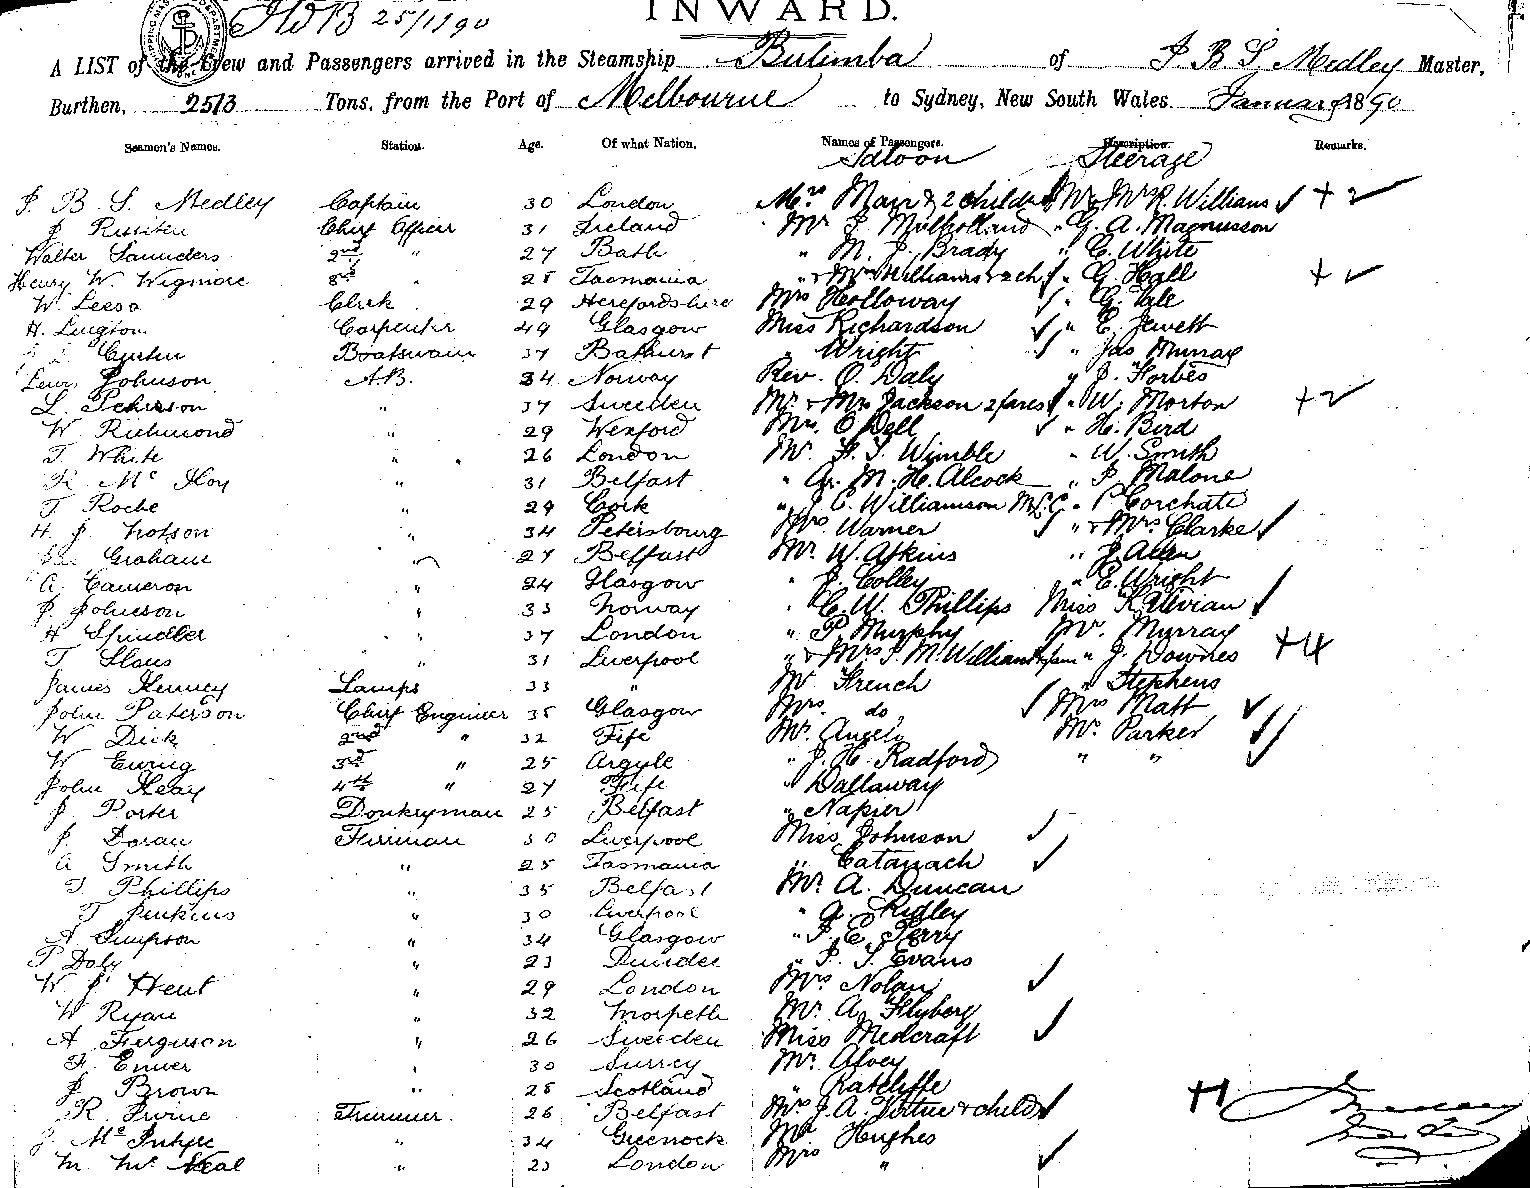 HDB 25/1/90
INWARD.
A LIST of the Crew and Passengers arrived in the Steamship Bulimba of J. B. S. Medley Master,
Burthen, 2513 Tons, from the Port of Melbourne to Sydney, New South Wales. January 1890
Seamen's Names. Station. Age. Of what Nation. Names of Passengers. Description. Remarks.
Saloon Steerage
J. B. S. Medley Captain 30 London Mrs Marr & 2 children Mr & Mrs R. Williams + 2
J Chief Officer 31 Ireland Mr J. Mulholland " G. A. Magnusson
Walter Saunders 2nd " 27 Bath " M. J. Brady " C. White
Henry W. Wigmore 3rd " 28 Tasmania " & Mrs Williams & 2 ch " G. Hall +
W. Leesa Clerk 29 Herefordshire Mrs Holloway " G. Vale
H. Lington Carpenter 49 Glasgow Miss Richardson " E. Jewett
Curtin Boatswain 37 Bathurst " Wright " Jas Murray
Lewis Johnson A.B. 34 Norway Rev. O. Daly " J. Forbes
L. Peterson " 37 Sweeden Mr & Mrs Jackson 2 fares " W. Morton + 2
W Richmond " 29 Wexford Mrs E Dell " H. Bird
T White " 26 London Mr. F. T. Wimble " W. Smith
R. Mc Iloy " 31 Belfast " A. M. H. Alcock " P Malone
T Roche " 29 Cork " J. C. Williamson " P Corchate
H. J. Notson " 34 Petersbourg Mrs Warner " & Mrs Clarke
Graham " 27 Belfast Mr. W. Atkins " J. Allen
A. Cameron " 24 Glasgow " J. Colley " E. Wright
J. Johnson " 33 Norway " C. W. Phillips Miss K. Vivian
H Spindler " 37 London " P. Murphy Mr. Murray
T " 31 Liverpool " & Mrs McWilliams " J. Downes + 4
James Kenney Lamps 33 " Mr French " Stephens
John Paterson Chief Engineer 35 Glasgow Mrs. do Mrs Matt
W Dick 2nd " 32 Fife Mr. Angelo Mr. Parker
W Ewing 3rd " 25 Argyle " J. H. Radford " "
John Heay 4th " 27 Fife " Dallaway
J. Porter Donkeyman 25 Belfast " Napier
J. Doran Fireman 30 Liverpool Miss Johnson
A Smith " 25 Tasmania " Catanach
T Phillips " 35 Belfast Mr. A. Duncan
T Jenkins " 30 Liverpool " G. Ridley
A Simpson " 34 Glasgow " P. E. Perry
P Daly " 23 Dundee " P. S. Evans
W J Hent " 29 London Mrs Nolan
W Ryan " 32 Morpeth Mr. A. Flyberg
A Ferguson " 26 Sweeden Miss Medcraft
F. Enwer " 30 Surrey Mr. Alvey
J Brown " 28 Scotland " Ratcliffe
R. Irvine Trimmer 26 Belfast Mrs J. A. Virtue & child + 1
J. Mc Intyre " 34 Greenock Mr Hughes
M. Mc Neal " 23 London Mrs "